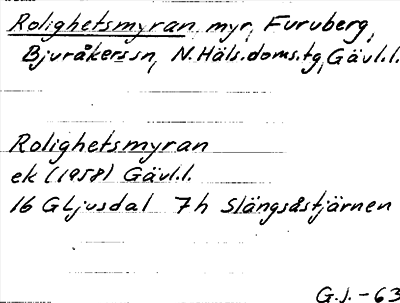 Rolighetsmyran myr, Furuberg,
Bjuråkers sn, N. Häls. doms. tg, Gävl.l.
Rolighetsmyran
ek (1958) Gävl.l.
16 G Ljusdal 7h Slängsåstjärnen
G.J. -63